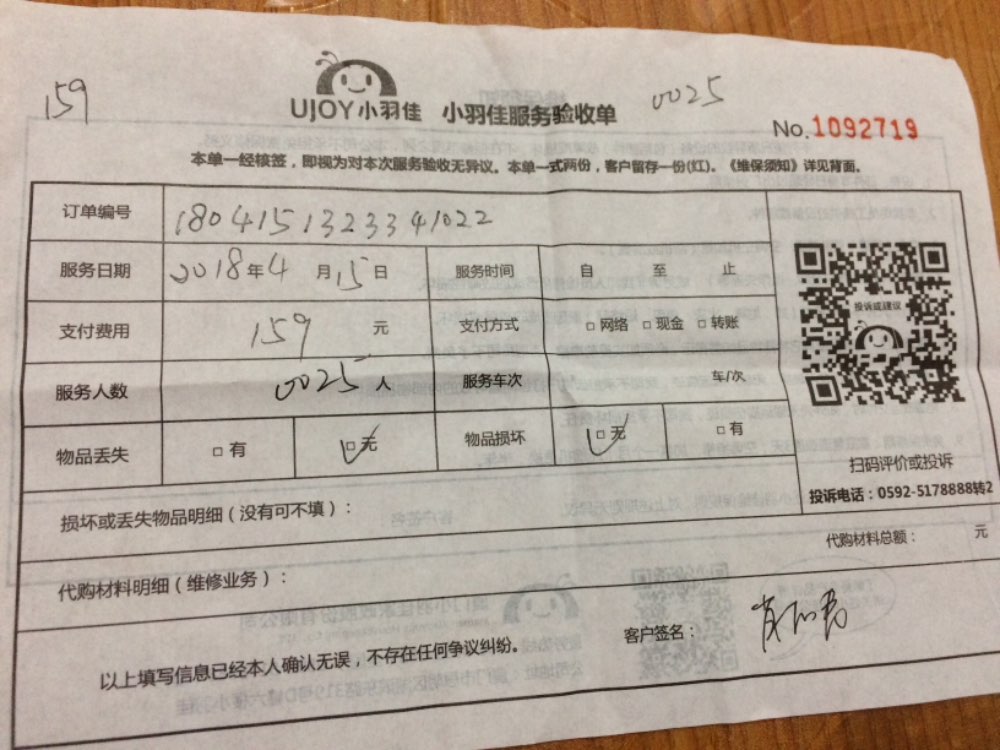 159
UJOY小羽佳 小羽佳服务验收单 0025
No.1092719
本单一经核签，即视为对本次服务验收无异议。本单一式两份，客户留存一份(红)。《维保须知》详见背面。
订单编号 1804151323341022
服务日期 2018年4月15日 服务时间 自 至 止
支付费用 159 元 支付方式 □网络 □现金 □转账
服务人数 0025人 服务车次 车/次
物品丢失 □有 □无 物品损坏 □无 □有
投诉或建议
扫码评价或投诉
投诉电话：0592-5178888转2
损坏或丢失物品明细（没有可不填）：
代购材料总额： 元
代购材料明细（维修业务）：
客户签名：
以上填写信息已经本人确认无误，不存在任何争议纠纷。